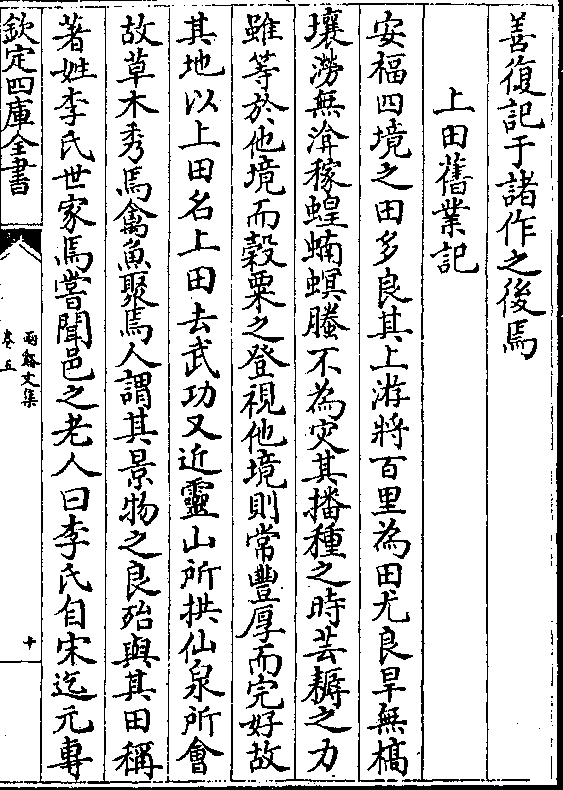 善復記于諸作之後焉
上田舊業記
安福四境之田多良其上游將百里為田尤良旱無槁
壤澇無渰稼蝗蝻螟螣不為灾其播種之時芸耨之力
雖等於他境而穀粟之登視他境則常豐厚而完好故
其地以上田名上田去武功又近靈山所拱仙泉所會
故草木秀焉禽魚聚焉人謂其景物之良殆與其田稱
著姓李氏世家焉嘗聞邑之老人曰李氏自宋迄元專
欽定四庫全書
兩谿文集
卷五
十